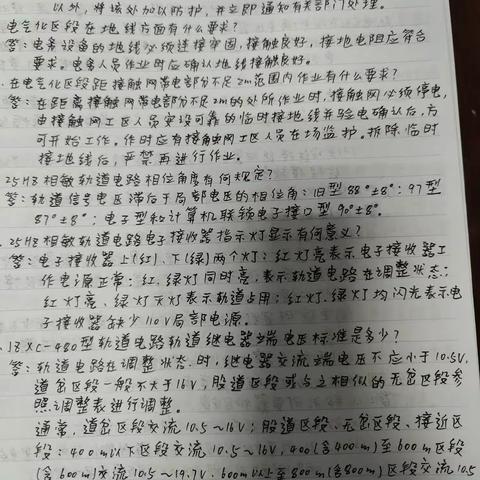 以外，将该处加以防护，并立即通知有关部门处理。
电气化区段在地线方面有什么要求？
答：电务设备的地线必须连接牢固，接触良好，接地电阻应符合
要求。电务人员作业时应确认地线接触良好。
在电气化区段距接触网带电部分不足2m范围内作业有什么要求？
答：在距离接触网带电部分不足2m的处所作业时，接触网必须停电，
由接触网工区人员安设可靠的临时接地线并验电确认后，方
可开始工作。作时应有接触网工区人员在场监护。拆除临时
接地线后，严禁再进行作业。
25HZ相敏轨道电路相位角度有何规定？
答：轨道信号电压滞后于局部电压的相位角：旧型88°±8°；97型
87°±8°；电子型和计算机联锁电子接口型90°±8°。
25HZ相敏轨道电路电子接收器指示灯显示有何意义？
答：电子接收器上(红)、下(绿)两个灯；红灯亮表示电子接收器工
作电源正常；红、绿灯同时亮，表示轨道电路在调整状态；
红灯亮、绿灯灭灯表示轨道占用；红灯、绿灯均闪光表示电
子接收器缺少110V局部电源。
JZXC-480型轨道电路轨道继电器端电压标准是多少？
答：轨道电路在调整状态时，继电器交流端电压不应小于10.5V，
道岔区段一般不大于16V，股道区段或与之相似的无岔区段参
照调整表进行调整。
通常，道岔区段交流10.5～16V；股道区段、无岔区段、接近区
段：400m以下区段交流10.5～16V，400(含400m)至600m区段
(含600m)交流10.5～19.7V，600m以上至800m(含800m)区段交流10.5